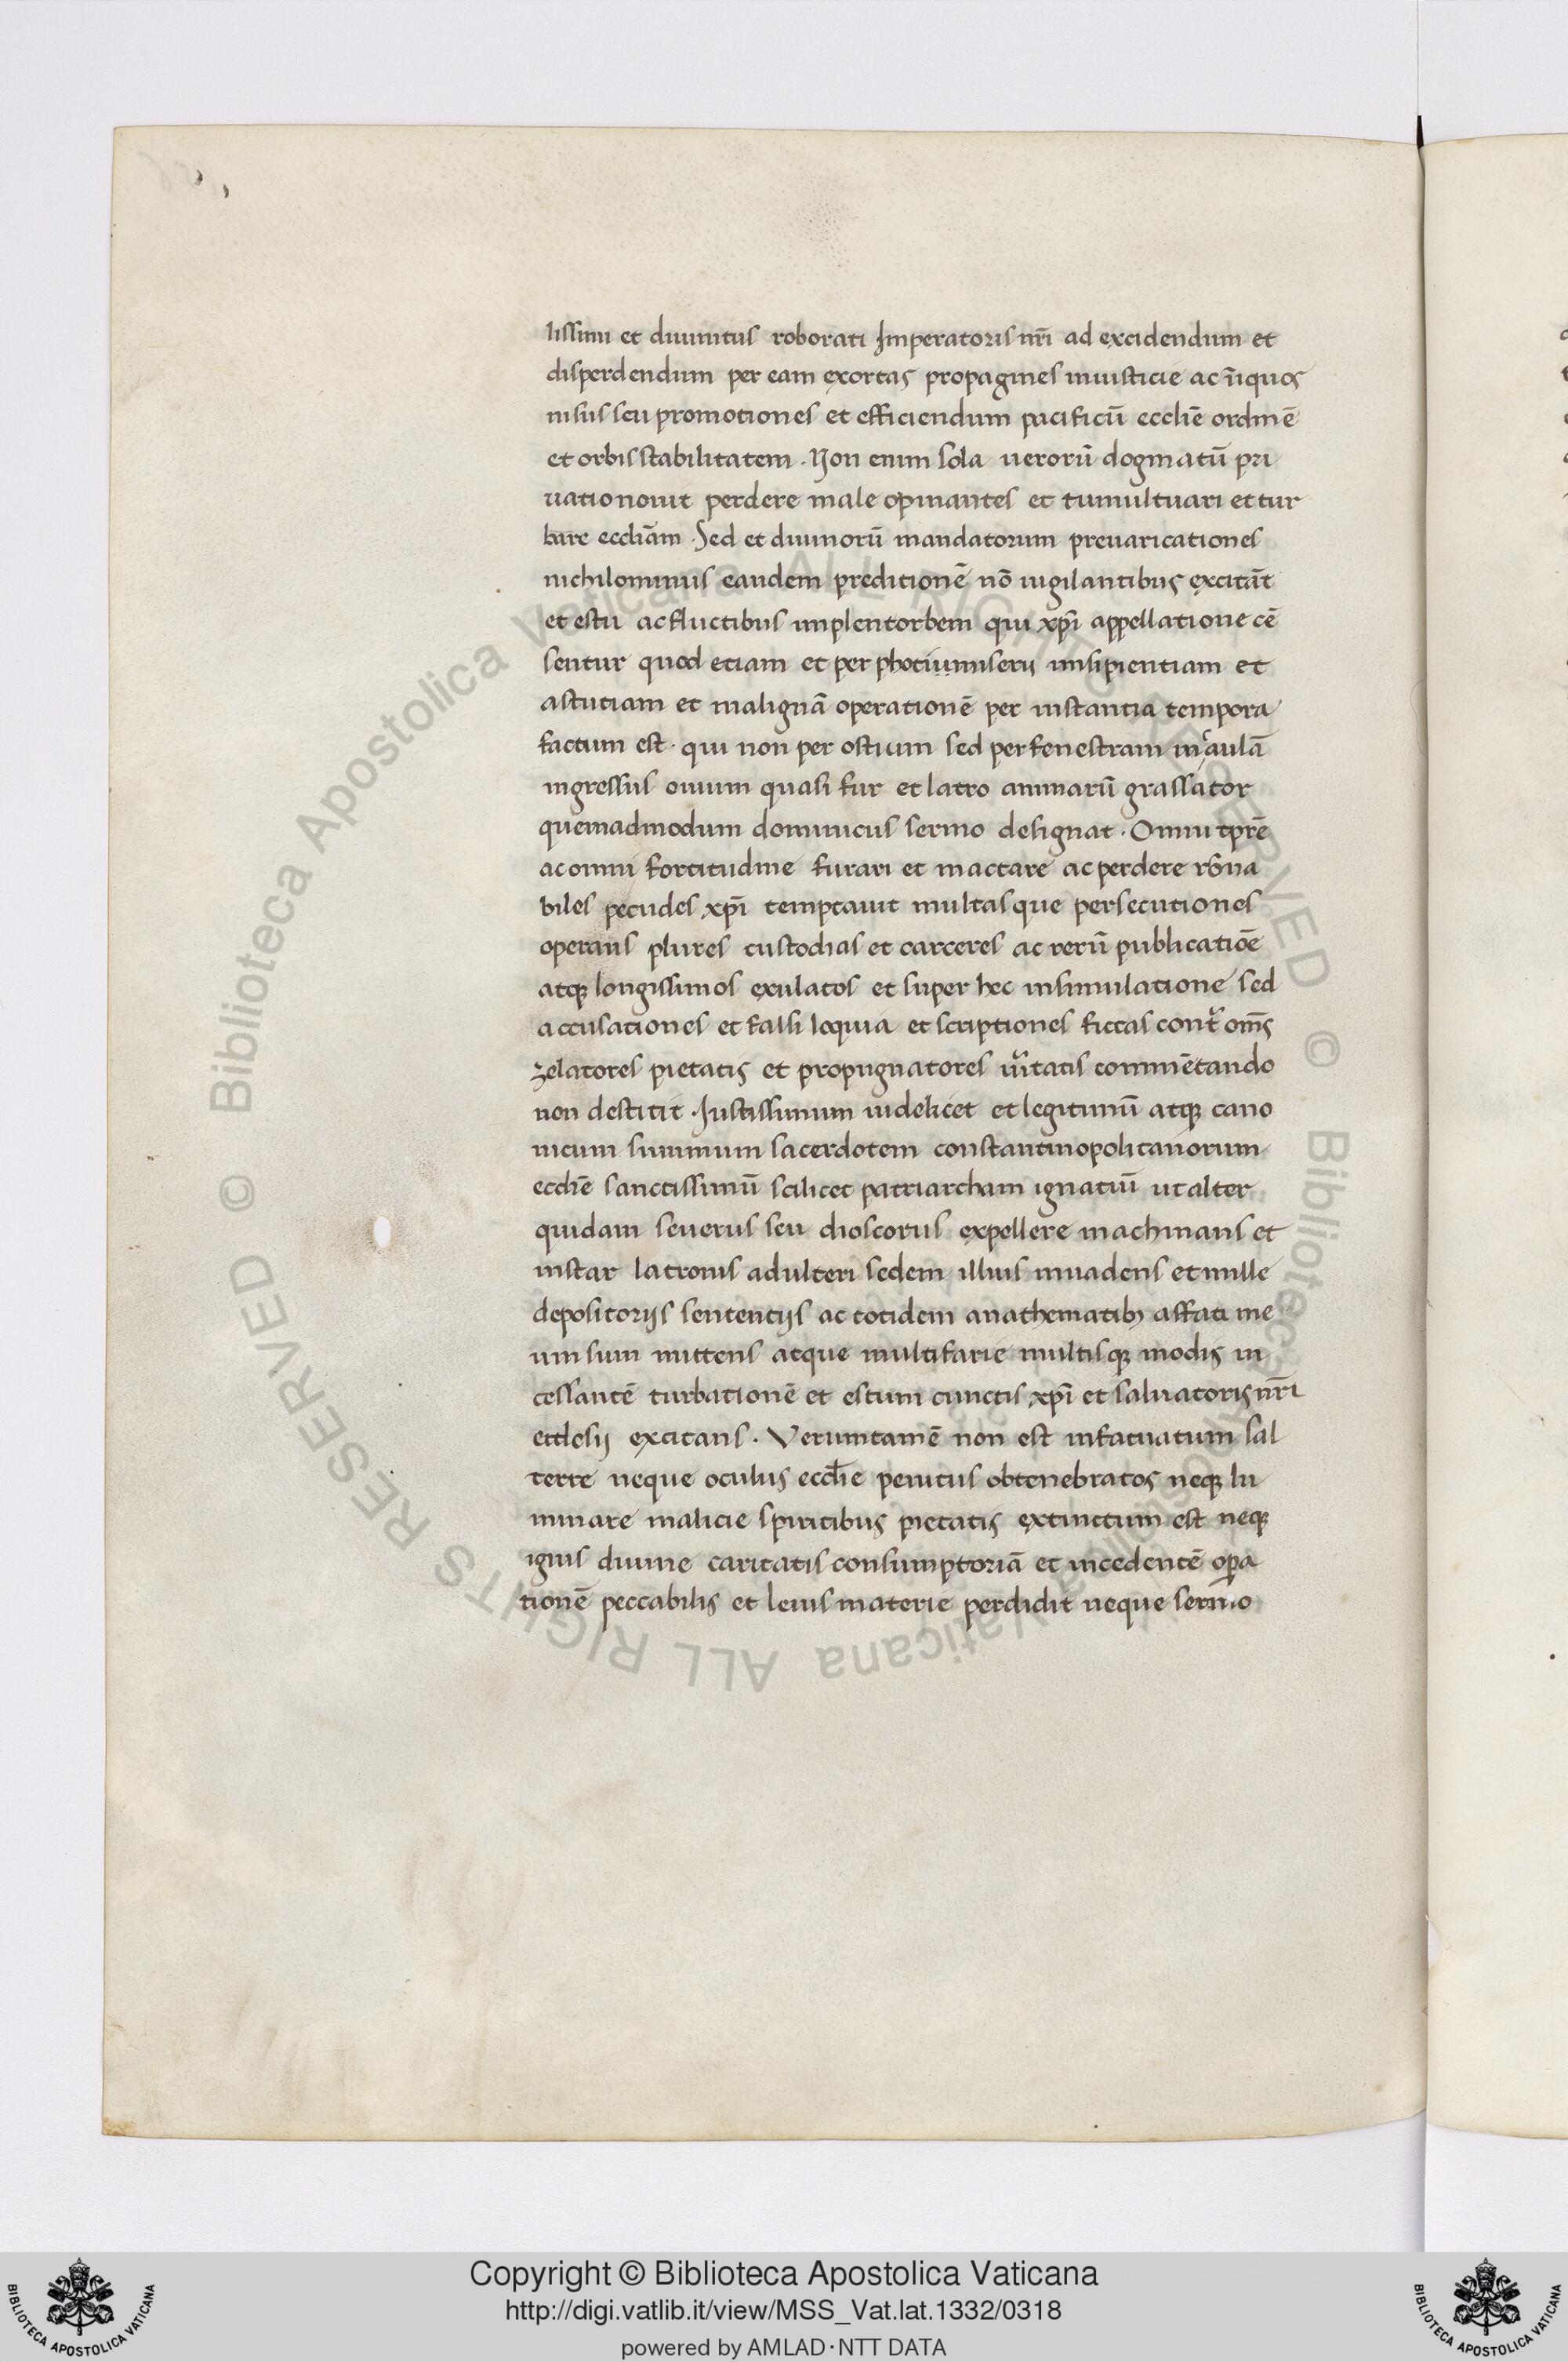 lissimi et diuinitus roborati Imperatoris nr̄i ad excidendum et
disperdendum per eam exortas propagines iniusticie ac īiquos
nisus seu promotiones et efficiendum pacificū eccl̄ie ordinē
et orbis stabilitatem . Non enim sola uerorū dogmatū pri
uatio nouit perdere male opinantes et tumultuari et tur
bare eccl̄iam . Sed et diuinorū mandatorum preuaricationes
nichilominus eandem preditionē nō uigilantibus excitāt
et estu ac fluctibus implent orbem qui xp̄i appellatione cē
sentur quod etiam et per photium miserij insipientiam et
astutiam et malignā operationē per instantia tempora
factum est . qui non per ostium sed per fenestram in aulā
ingressus ouium quasi fur et latro animarū grassator
quemadmodum dominicus sermo designat . Omni tp̄re
ac omni fortitudine furari et mactare ac perdere rōna
biles pecudes xp̄i temptauit multasque persecutiones
operans plures custodias et carceres ac rerū publicatiōe
atqꝫ longissimos exulatos et super hec insimulatione sed
accusationes et falsi loquia et scriptiones fictas contr̄ om̄s
zelatores pietatis et propugnatores ūritatis commētando
non destitit . Iustissimum uidelicet et legitimū atqꝫ cano
nicum summum sacerdotem constantinopolitanorum
eccl̄ie sanctissimū scilicet patriarcham ignatiū ut alter
quidam seuerus seu dioscorus expellere machinans et
instar latronis adulteri sedem illius inuadens et mille
depositorijs sententijs ac totidem anathematibꝫ affati me
um sum mittens atque multifarie multisqꝫ modis in
cessantē turbationē et estum cunctis xp̄i et saluatoris nr̄i
ecclesij excitans . Veruntamē non est infatuatum sal
terre neque oculus eccl̄ie penitus obtenebratos neqꝫ lu
minare malicie spiritibus pietatis extinctum est neqꝫ
ignis diuine caritatis consumptoriā et incedentē oꝑa
tionē peccabilis et leuis materie perdidit neque sermo
Copyright © Biblioteca Apostolica Vaticana
http://digi.vatlib.it/view/MSS_Vat.lat.1332/0318
powered by AMLAD·NTT DATA
BIBLIOTECA APOSTOLICA VATICANA
BIBLIOTECA APOSTOLICA VATICANA
© Biblioteca Apostolica Vaticana ALL RIGHTS RESERVED © Biblioteca Apostolica Vaticana ALL RIGHTS RESERVED